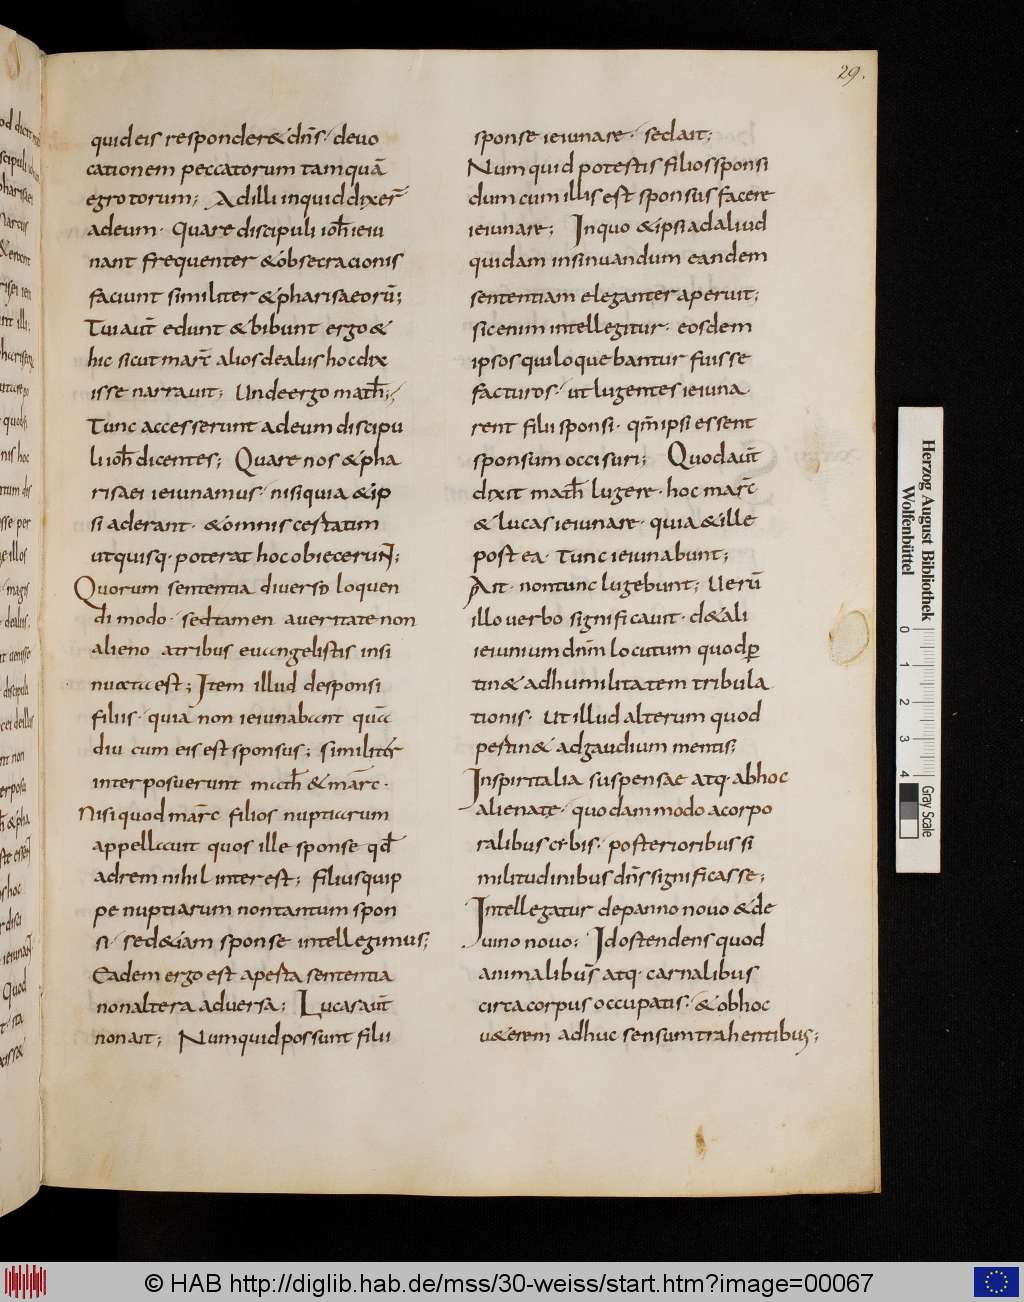 29.
quid eis responder& dn̄s· de uo
cationem peccatorum tamquā
egrotorum; Ad illi inquid dixer̄
ad eum· Quare discipuli ioh̄ ieiu
nant frequenter & obsecracionis
faciunt similiter & pharisaeorū;
Tui aut̄ edunt & bibunt ergo &
hic sicut marc̄ alios de aliis hoc dix
isse narrauit; Unde ergo math̄;
Tunc accesserunt ad eum discipu
li ioh̄ dicentes; Quare nos & pha
risaei ieiunamus· nisi quia & ip
si aderant· & omnis certatim
ut quisq· poterat hoc obiecerunt;
Quorum sententia diuerso loquen
di modo· sed tamen a ueritate non
alieno a tribus euangelistis insi
nuata est; Item illud de sponsi
filiis· quia non ieiunabunt quā
diu cum eis est sponsus; similiter
interposuerunt math̄ & marc̄·
Nisi quod marc̄ filios nuptiarum
appellauit quos ille sponse qd̄
ad rem nihil interest; filius quip
pe nuptiarum non tantum spon
si· sed & iam sponse intellegimus;
Eadem ergo est apesta sententia
non altera aduersa; Lucas aut̄
non ait; Numquid possunt filii
sponse ieiunare· sed ait;
Numquid potestis filios sponsi
dum cum illis est sponsus facere
ieiunare; In quo & ipsi ad aliud
quidam insinuandum eandem
sententiam eleganter aperuit;
sic enim intellegitur· eosdem
ipsos qui loquebantur fuisse
facturos· ut lugentes ieiuna
rent filii sponsi· qm̄ ipsi essent
sponsum occisuri; Quod aut̄
dixit math̄ lugere· hoc marc̄
& lucas ieiunare· quia & ille
post ea· Tunc ieiunabunt;
Ait· non tunc lugebunt; Uerū
illo uerbo significauit· d& ali
ieiunium dnm̄ locutum quod ꝑ
tin& ad humilitatem tribula
tionis· Ut illud alterum quod
pertin& ad gaudium mentis;
In spiritalia suspensae atq· ab hoc
alienate· quodammodo a corpo
ralibus cibis· posterioribus si
militudinibus dn̄s significasse;
Intellegatur de panno nouo & de
uino nouo; Id ostendens quod
animalibus atq· carnalibus
circa corpus occupatis· & ob hoc
u&erem adhuc sensum trahentibus;
Herzog August Bibliothek
Wolfenbüttel
0 1 2 3 4
Gray Scale
© HAB http://diglib.hab.de/mss/30-weiss/start.htm?image=00067